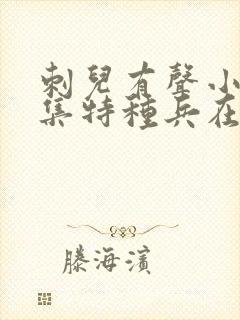 刺兒有聲小
集特種兵在
滕海濱